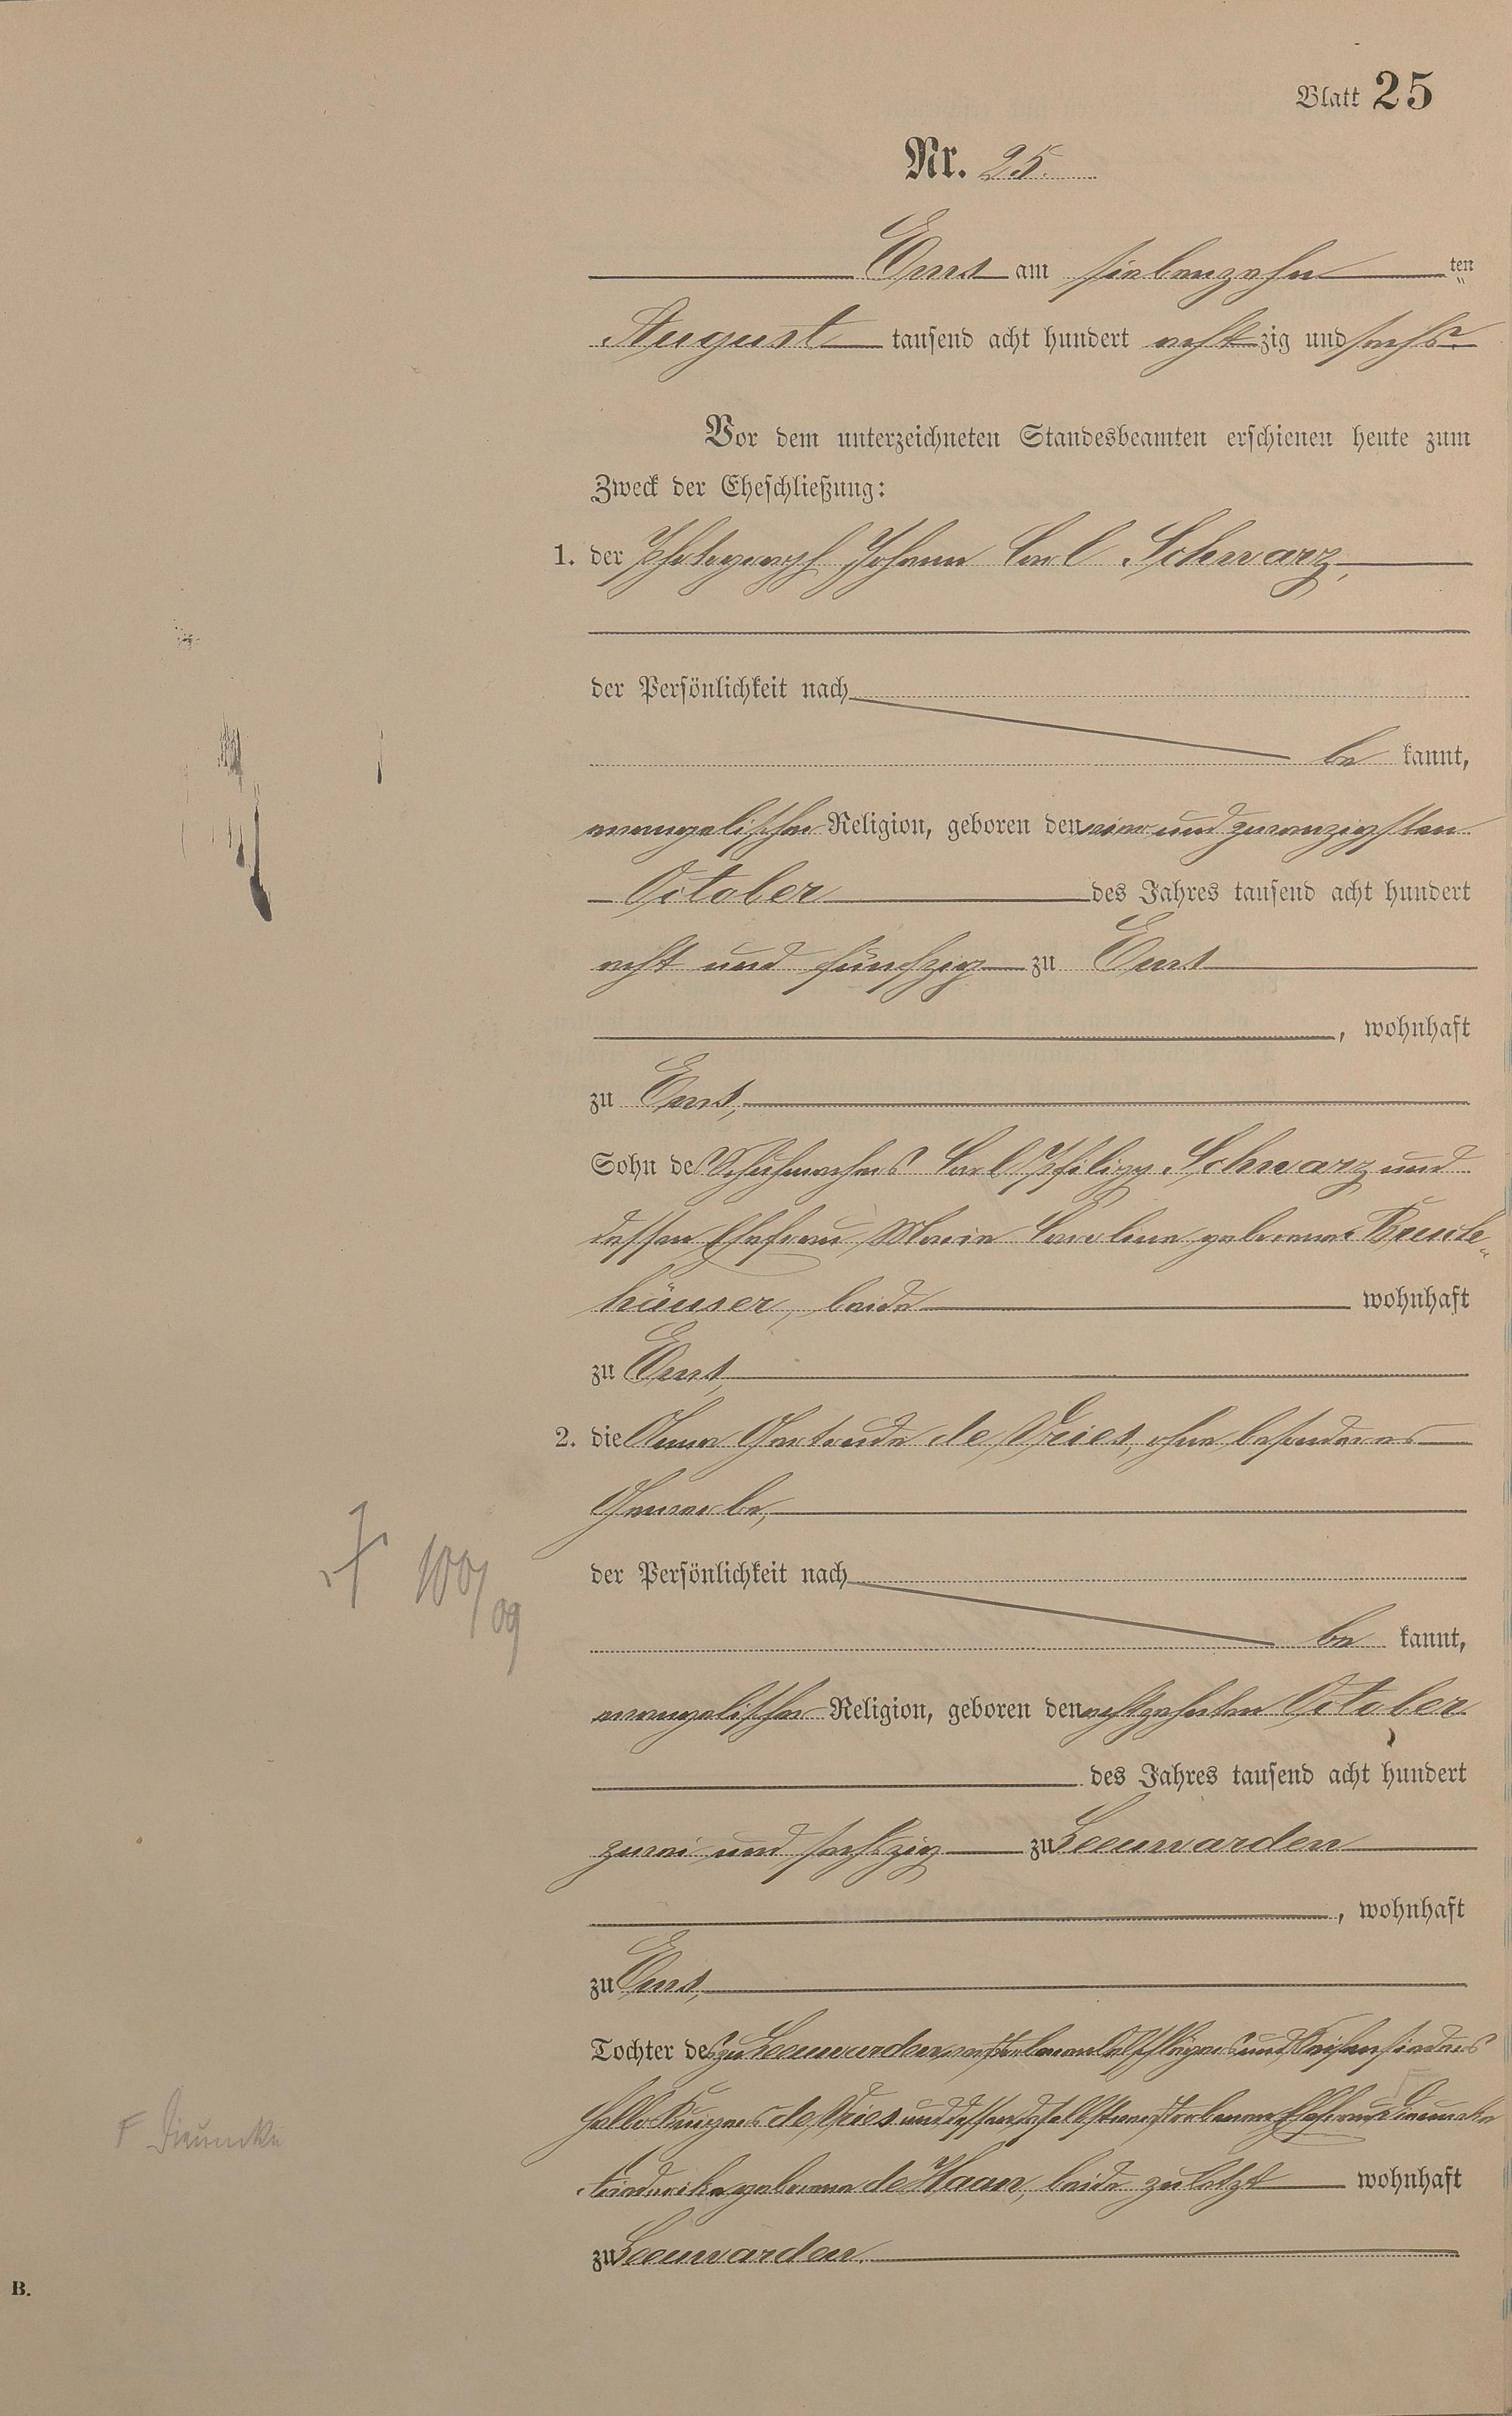 Blatt 25
Nr. 25.
Ems am siebenzehn ten
August tausend acht hundert achtzig und sechs.
Vor dem unterzeichneten Standesbeamten erschienen heute zum
Zweck der Eheschließung:
1. der Photograph Johann Carl Schwarz,
der Persönlichkeit nach
be kannt,
evangelischer Religion, geboren den vier und zwanzigsten
October des Jahres tausend acht hundert
acht und fünfzig zu Ems
, wohnhaft
zu Ems,
Sohn des Schuhmachers Carl Philipp Schwarz und
dessen Ehefrau Marie Caroline geborene Kreide-
häuser, beide wohnhaft
zu Ems,
2. die Anna Gertrude de Vries, ohne besonderes
Gewerbe,
der Persönlichkeit nach
be kannt,
evangelischer Religion, geboren den achtzehnten October
des Jahres tausend acht hundert
zwei und sechszig zu Leeuwarden
, wohnhaft
zu Ems,
Tochter des zu Leeuwarden verstorbenen und
de Vries und dessen daselbst verstorbenen Ehefrau
geborene de Haan, beide zuletzt wohnhaft
zu Leeuwarden.
100/09
B.